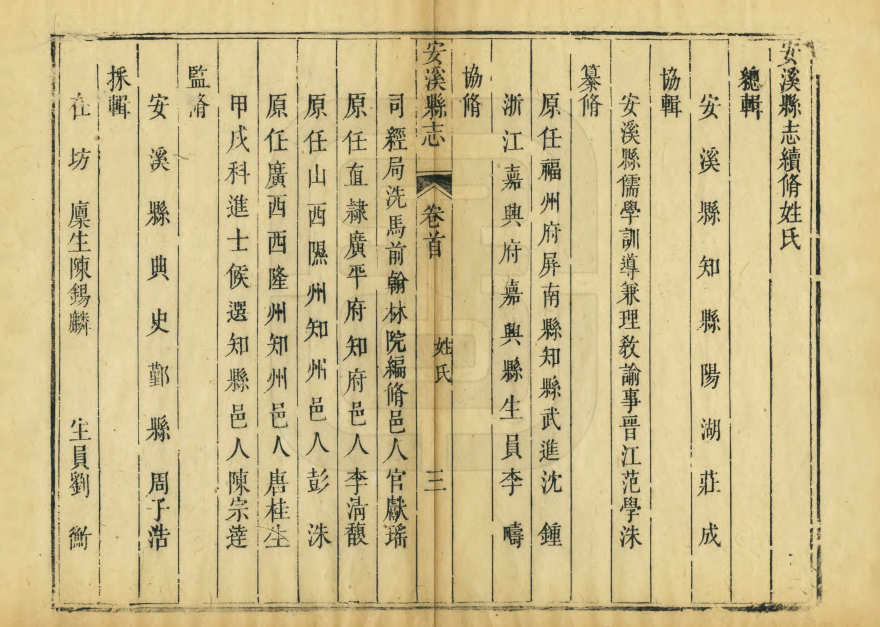 安溪縣志續脩姓氏
總輯
安溪縣知縣陽湖莊成
協輯
安溪縣儒學訓導兼理教諭事晉江范學洙
纂脩
原任福州府屏南縣知縣武進沈鍾
浙江嘉興府嘉興縣生員李疇
協脩
安溪縣志 卷首 姓氏 三
司經局洗馬前翰林院編脩邑人官獻瑤
原任直隷廣平府知府邑人李清馥
原任山西隰州知州邑人彭洙
原任廣西西隆州知州邑人唐桂生
甲戌科進士候選知縣邑人陳宗達
監脩
安溪縣典史鄞縣周子浩
採輯
在坊 廩生陳錫麟 生員劉衡